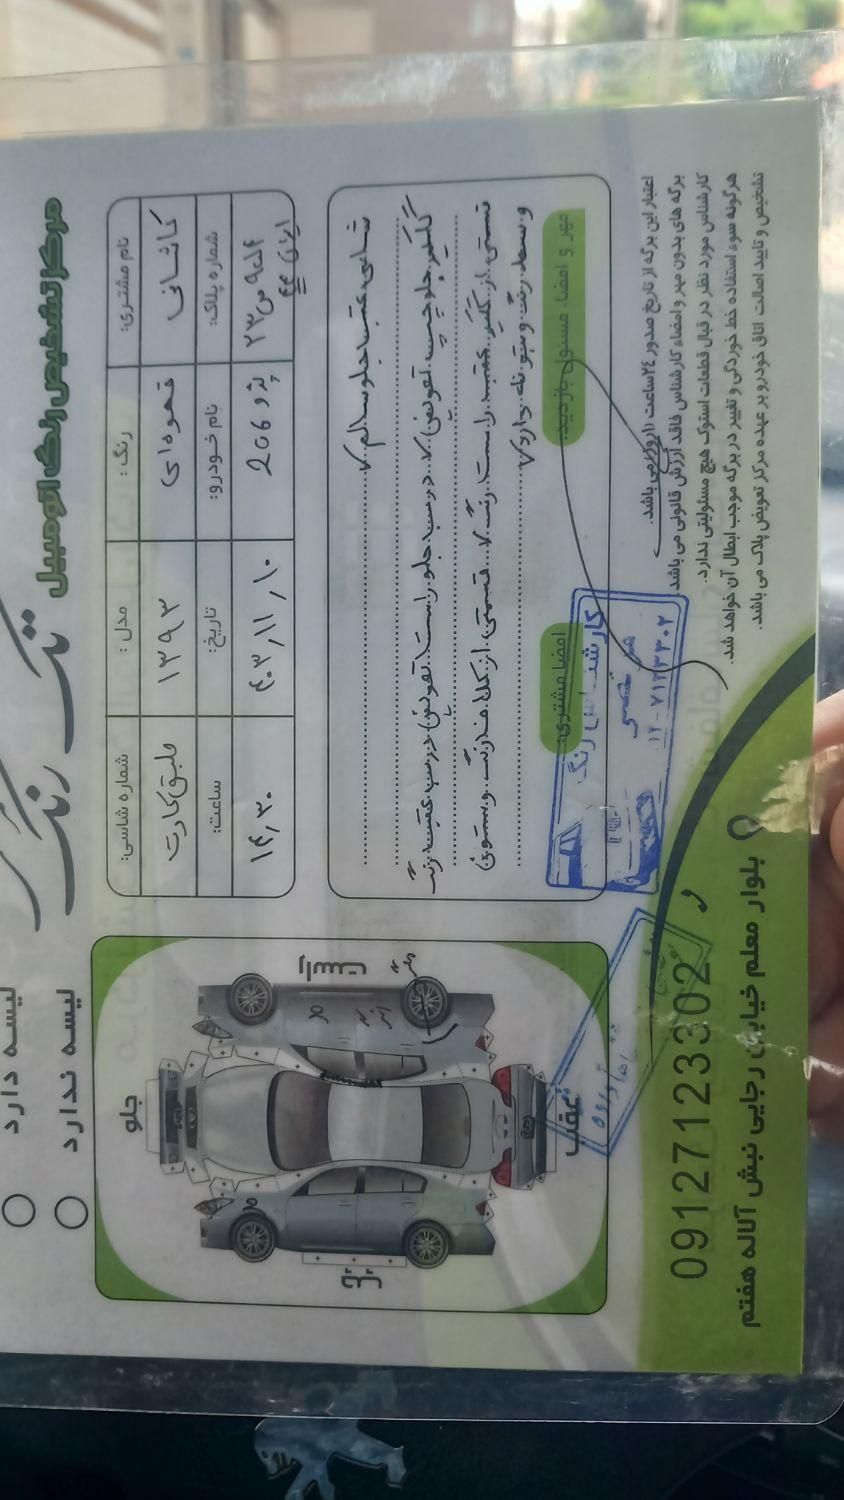 تک رنگ
مرکز تشخیص رنگ اتومبیل
لیسه دارد
لیسه ندارد
نام مشتری: کاشانی
رنگ: قهوه‌ای
مدل: ۱۳۹۳
شماره شاسی: طبق کارت
شماره پلاک:
ایران ۴۴
نام خودرو: پژو 206
تاریخ: ۴۰۳,۱۱,۱۰
ساعت: ۱۴,۳۰
شاسی عقب جلو سالم
گلگیر جلو چپ تعویض درب جلو راست تعویض درب عقب رنگ
قسمتی از گلگیر عقب راست رنگ قسمتی از کلاف رنگ و ستون
وسط رنگ و بتونه دارد
مهر و امضاء مسئول بازدید:
امضا مشتری:
کارشناسی رنگ
جلو
عقب
راست
چپ
اعتبار این برگه از تاریخ صدور ۲۴ ساعت (۱ روز) می باشد.
برگه های بدون مهر و امضاء کارشناس فاقد ارزش قانونی می باشد
کارشناس مورد نظر در قبال قطعات استوک هیچ مسئولیتی ندارد.
هرگونه سوء استفاده خط خوردگی و تغییر در برگه موجب ابطال آن خواهد شد.
تشخیص و تایید اصالت اتاق خودرو بر عهده مرکز تعویض پلاک می باشد.
09127123302
بلوار معلم خیابان رجایی نبش آلاله هفتم